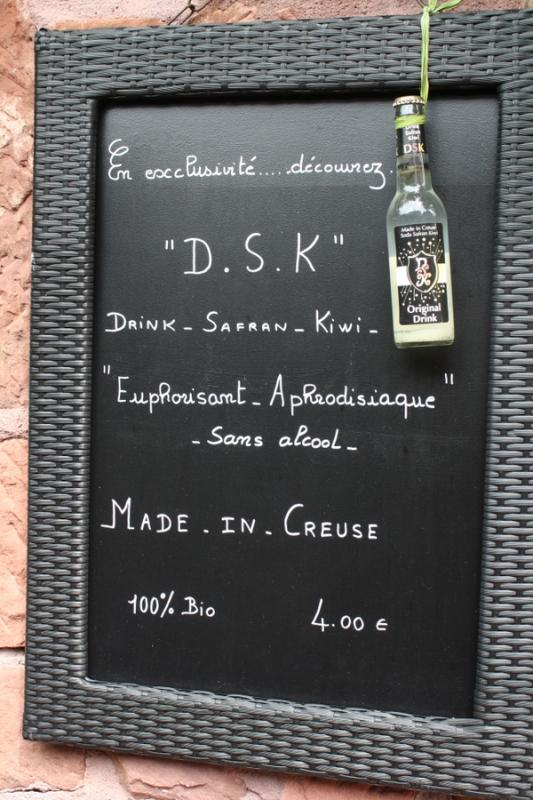 En exclusivité.....découvrez.
"D.S.K"
DRINK_SAFRAN_KIWI_
"Euphorisant_Aphrodisiaque"
_Sans alcool_
MADE_IN_CREUSE
100% Bio
4.00 €
Safran
Kiwi
DSK
Made in Creuse
Soda Safran Kiwi
DSK
Original
Drink